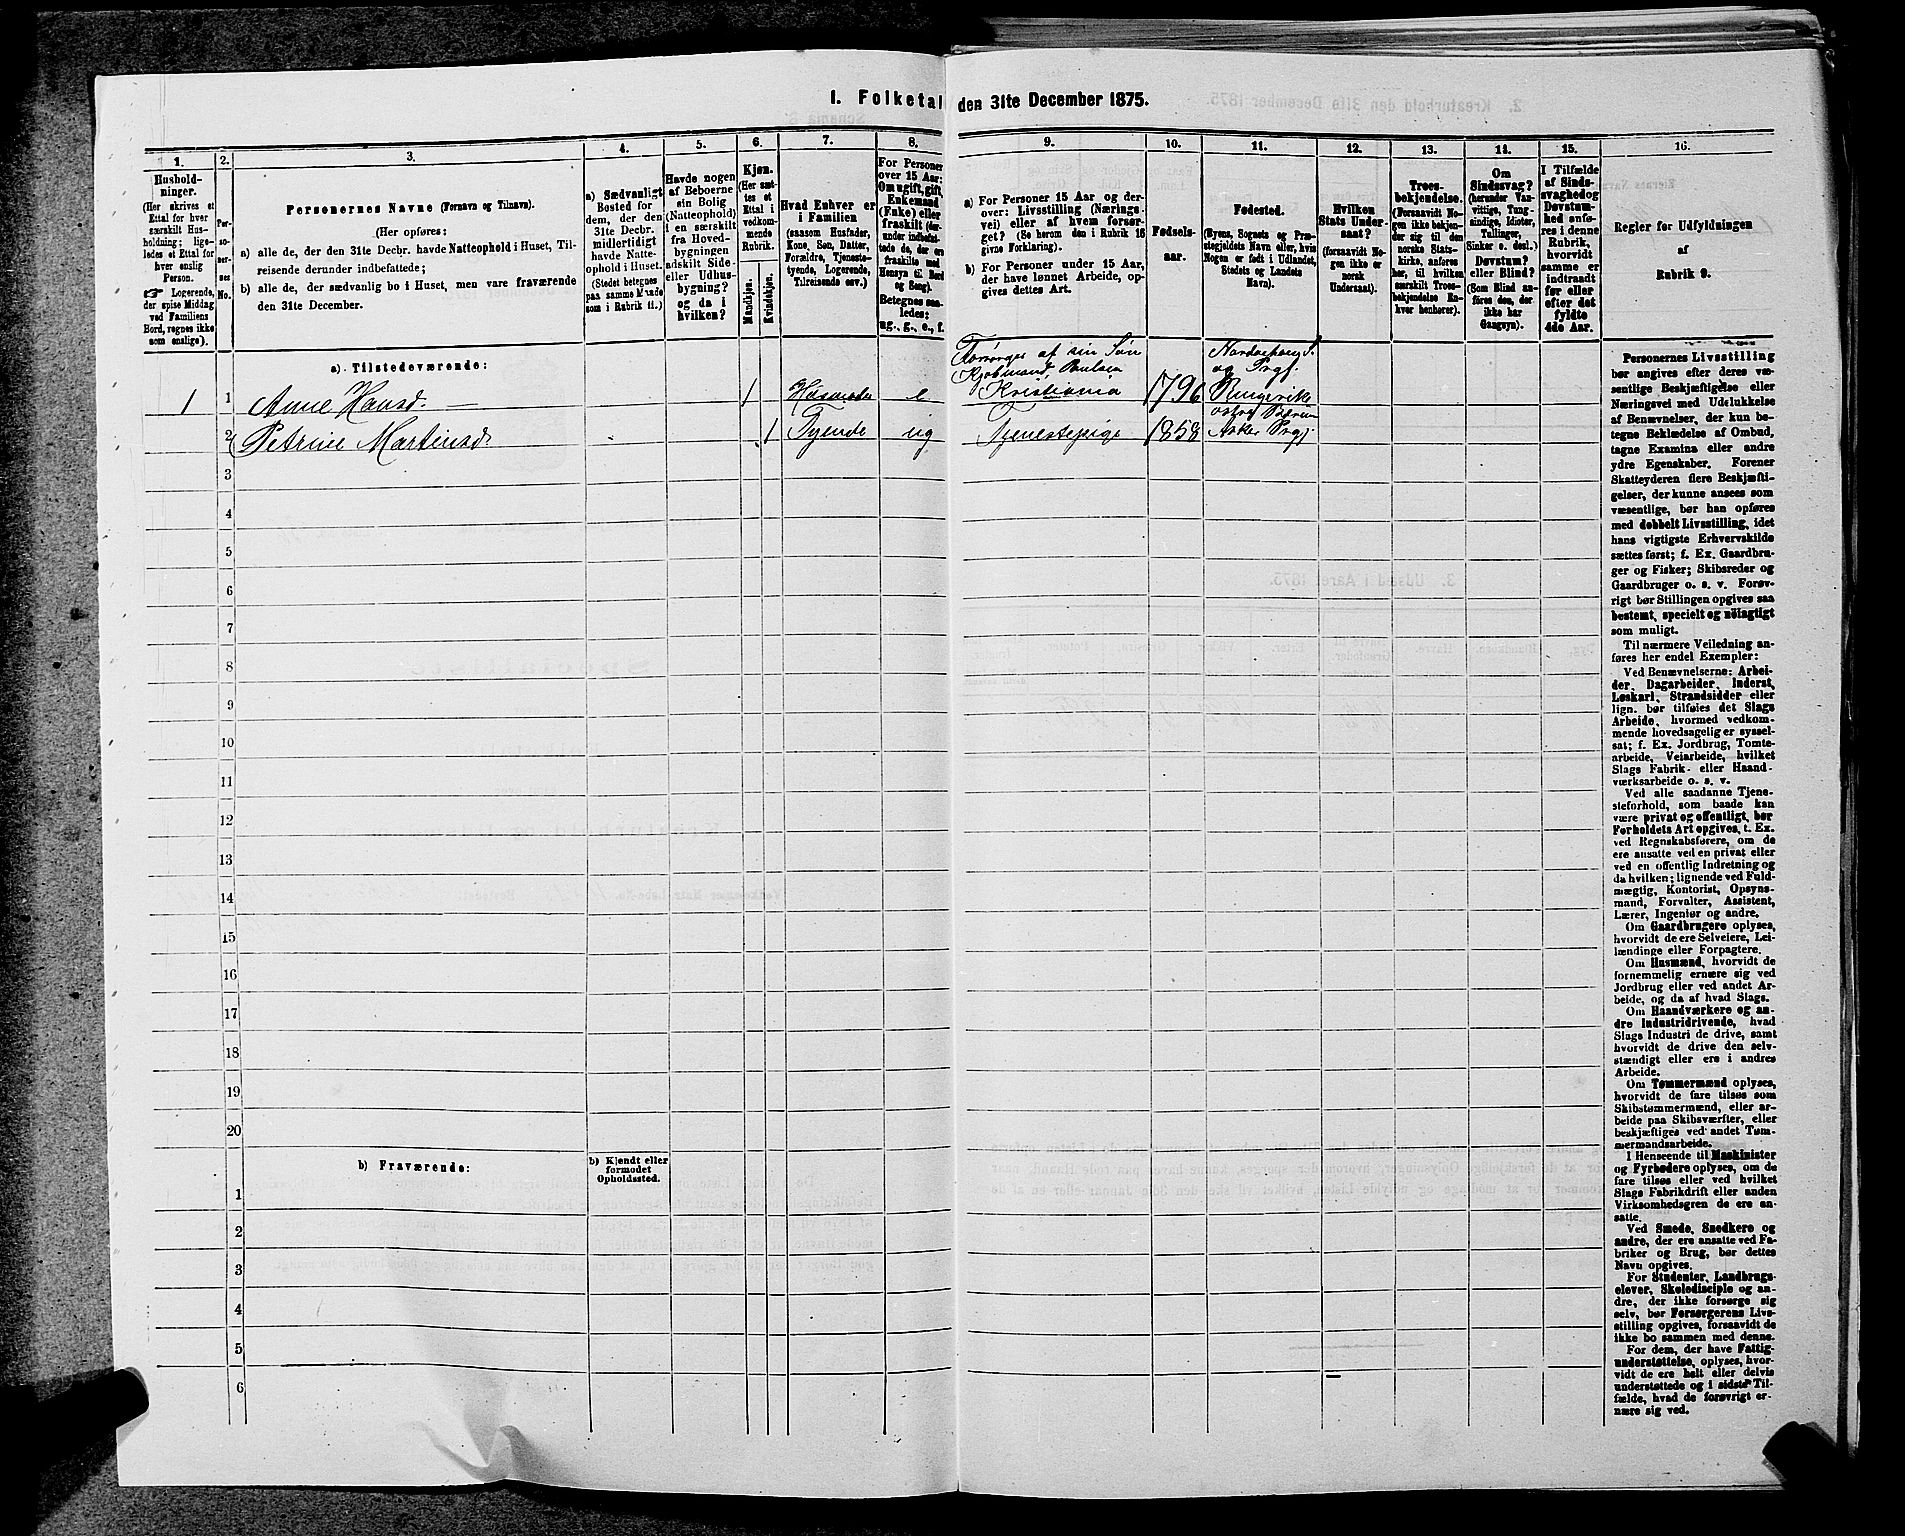 1. Folketal den 31te December 1875.
1.
2.
3.
4.
5.
6.
7.
8.
9.
10.
11.
12.
13.
14.
15.
16.
Hushold-
ninger.
(Her skrives et
Ettal for hver
særskilt Hus-
holdning; lige-
ledes et Ettal for
hver enslig
Person.
☞ Logerende,
der spise Middag
ved Familiens
Bord, regnes ikke
som enslige).
Per-
so-
ner-
nes
No.
Personernes Navne (Fornavn og Tilnavn).
(Her opføres:
a) alle de, der den 31te Decbr. havde Natteophold i Huset, Til-
reisende derunder indbefattede;
b) alle de, der sædvanlig bo i Huset, men vare fraværende
den 31te December.
a) Sædvanligt
Bosted for
dem, der den
31te Decbr.
midlertidigt
havde Natte-
ophold i Huset.
(Stedet betegnes
paa samme Maade
som i Rubrik 11.)
Havde nogen
af Beboerne
sin Bolig
(Natteophold)
i en særskilt
fra Hoved-
bygningen
adskilt Side-
eller Udhus-
bygning?
og da i
hvilken?
Kjøn.
(Her sæt-
tes et
Ettal i
vedkom-
mende
Rubrik.
Mandkjøn.
Kvindekjøn.
Hvad Enhver er
i Familien
(saasom Husfader,
Kone, Søn, Datter,
Forældre, Tjeneste-
tyende, Logerende,
Tilreisende osv.)
For Personer
over 15 Aar:
Om ugift, gift,
Enkemand
(Enke) eller
fraskilt (der-
under indbefat-
tede de, der ere
fraskilte med
Hensyn til Bord
og Seng).
Betegnes saa-
ledes:
ug., g., e., f.
a) For Personer 15 Aar og der-
over: Livsstilling (Nærings-
vei) eller af hvem forsør-
get? (Se herom den i Rubrik 16
givne Forklaring).
b) For Personer under 15 Aar,
der have lønnet Arbeide, op-
gives dettes Art.
Fødsels-
aar.
Fødested.
(Byens, Sognets og Præ-
stegjeldets Navn eller, hvis
Nogen er født i Udlandet,
Stedets og Landets
Navn).
Hvilken
Stats Under-
saat?
(forsaavidt No-
gen ikke er
norsk
Undersaat).
Troes-
bekjendelse.
(Forsaavidt No-
gen ikke bekjen-
der sig til den
norske Stats-
kirke, anføres
her, til hvilken
særskilt Troes-
bekjendelse En-
hver henhører).
Om
Sindssvag?
(herunder Van-
vittige, Tung-
sindige, Idioter,
Tullinger,
Sinker o. desl.)
Døvstum?
eller Blind?
(Som Blind an-
føres den, der
ikke har
Gangsyn).
I Tilfælde
af Sinds-
svaghed og
Døvstum-
hed anfø-
res i denne
Rubrik,
hvorvidt
samme er
indtraadt
før eller
efter det
fyldte
4de Aar.
Regler for Udfyldningen
af
Rubrik 9.
a) Tilstedeværende:
Forsørges af sin Søn
Kjøbmand Paulsen
Nordrehoug S.
og Prgj.
1 1 Anne Hansd. 1 e Kristiania 1796 Ringerike
2 Petrine Martinsd 1 Tyende ug Tjenestepige 1858 Asker Prgj.
3
4
5
6
7
8
9
10
11
12
13
14
15
16
17
18
19
20
b) Fraværende:
b) Kjendt eller
formodet
Opholdssted.
1
2
3
4
5
6
Personernes Livsstilling
bør angives efter deres væ-
sentlige Beskjæftigelse eller
Næringsvei med Udelukkelse
af Benævnelser, der kun be-
tegne Beklædelse af Ombud,
tagne Examina eller andre
ydre Egenskaber. Forener
Skatteyderen flere Beskjæfti-
gelser, der kunne ansees som
væsentlige, bør han opføres
med dobbelt Livsstilling, idet
hans vigtigste Erhvervskilde
sættes først; f. Ex. Gaardbru-
ger og Fisker; Skibsreder og
Gaardbruger o. s. v. Forøv-
rigt bør Stillingen opgives saa
bestemt, specielt og nøiagtigt
som muligt.
Til nærmere Veiledning an-
føres her endel Exempler:
Ved Benævnelserne: Arbei-
der, Dagarbeider, Inderst,
Løskarl, Strandsidder eller
lign. bør tilføies det Slags
Arbeide, hvormed vedkom-
mende hovedsagelig er syssel-
sat; f. Ex. Jordbrug, Tomte-
arbeide, Veiarbeide, hvilket
Slags Fabrik- eller Haand-
værksarbeide o. s. v.
Ved alle saadanne Tjene-
steforhold, som baade kan
være privat og offentligt, bør
Forholdets Art opgives, t. Ex.
ved Regnskabsførere, om de
ere ansatte ved en privat eller
ved en offentlig Indretning og
da hvilken; lignende ved Fuld-
mægtig, Kontorist, Opsyns-
mand, Forvalter, Assistent,
Lærer, Ingeniør og andre.
Om Gaardbrugere oplyses,
hvorvidt de ere Selveiere, Lei-
lændinge eller Forpagtere.
Om Husmænd, hvorvidt de
fornemmelig ernære sig ved
Jordbrug eller ved andet Ar-
beide, og da af hvad Slags.
Om Haandværkere og an-
dre Industridrivende, hvad
Slags Industri de drive, samt
hvorvidt de drive den selv-
stændigt eller ere i andres
Arbeide.
Om Tømmermænd oplyses,
hvorvidt de fare tilsøs som
Skibstømmermænd, eller ar-
beide paa Skibsværfter, eller
beskjæftiges ved andet Tøm-
mermandsarbeide.
I Henseende til Maskinister
og Fyrbødere oplyses, om de
fare tilsøs eller ved hvilket
Slags Fabrikdrift eller anden
Virksomhedsgren de ere an-
satte.
Ved Smede, Snedkere og
andre, der ere ansatte ved Fa-
briker og Brug, bør dettes
Navn opgives.
For Studenter, Landbrugs-
elever, Skoledisciple og an-
dre, der ikke forsørge sig
selv, bør Forsørgerens Livs-
stilling opgives, forsaavidt de
ikke bo sammen med denne.
For dem, der have Fattig-
understøttelse, oplyses, hvor-
vidt de ere helt eller delvis
understøttede og i sidste Til-
fælde, hvad de forøvrigt er-
nære sig ved.